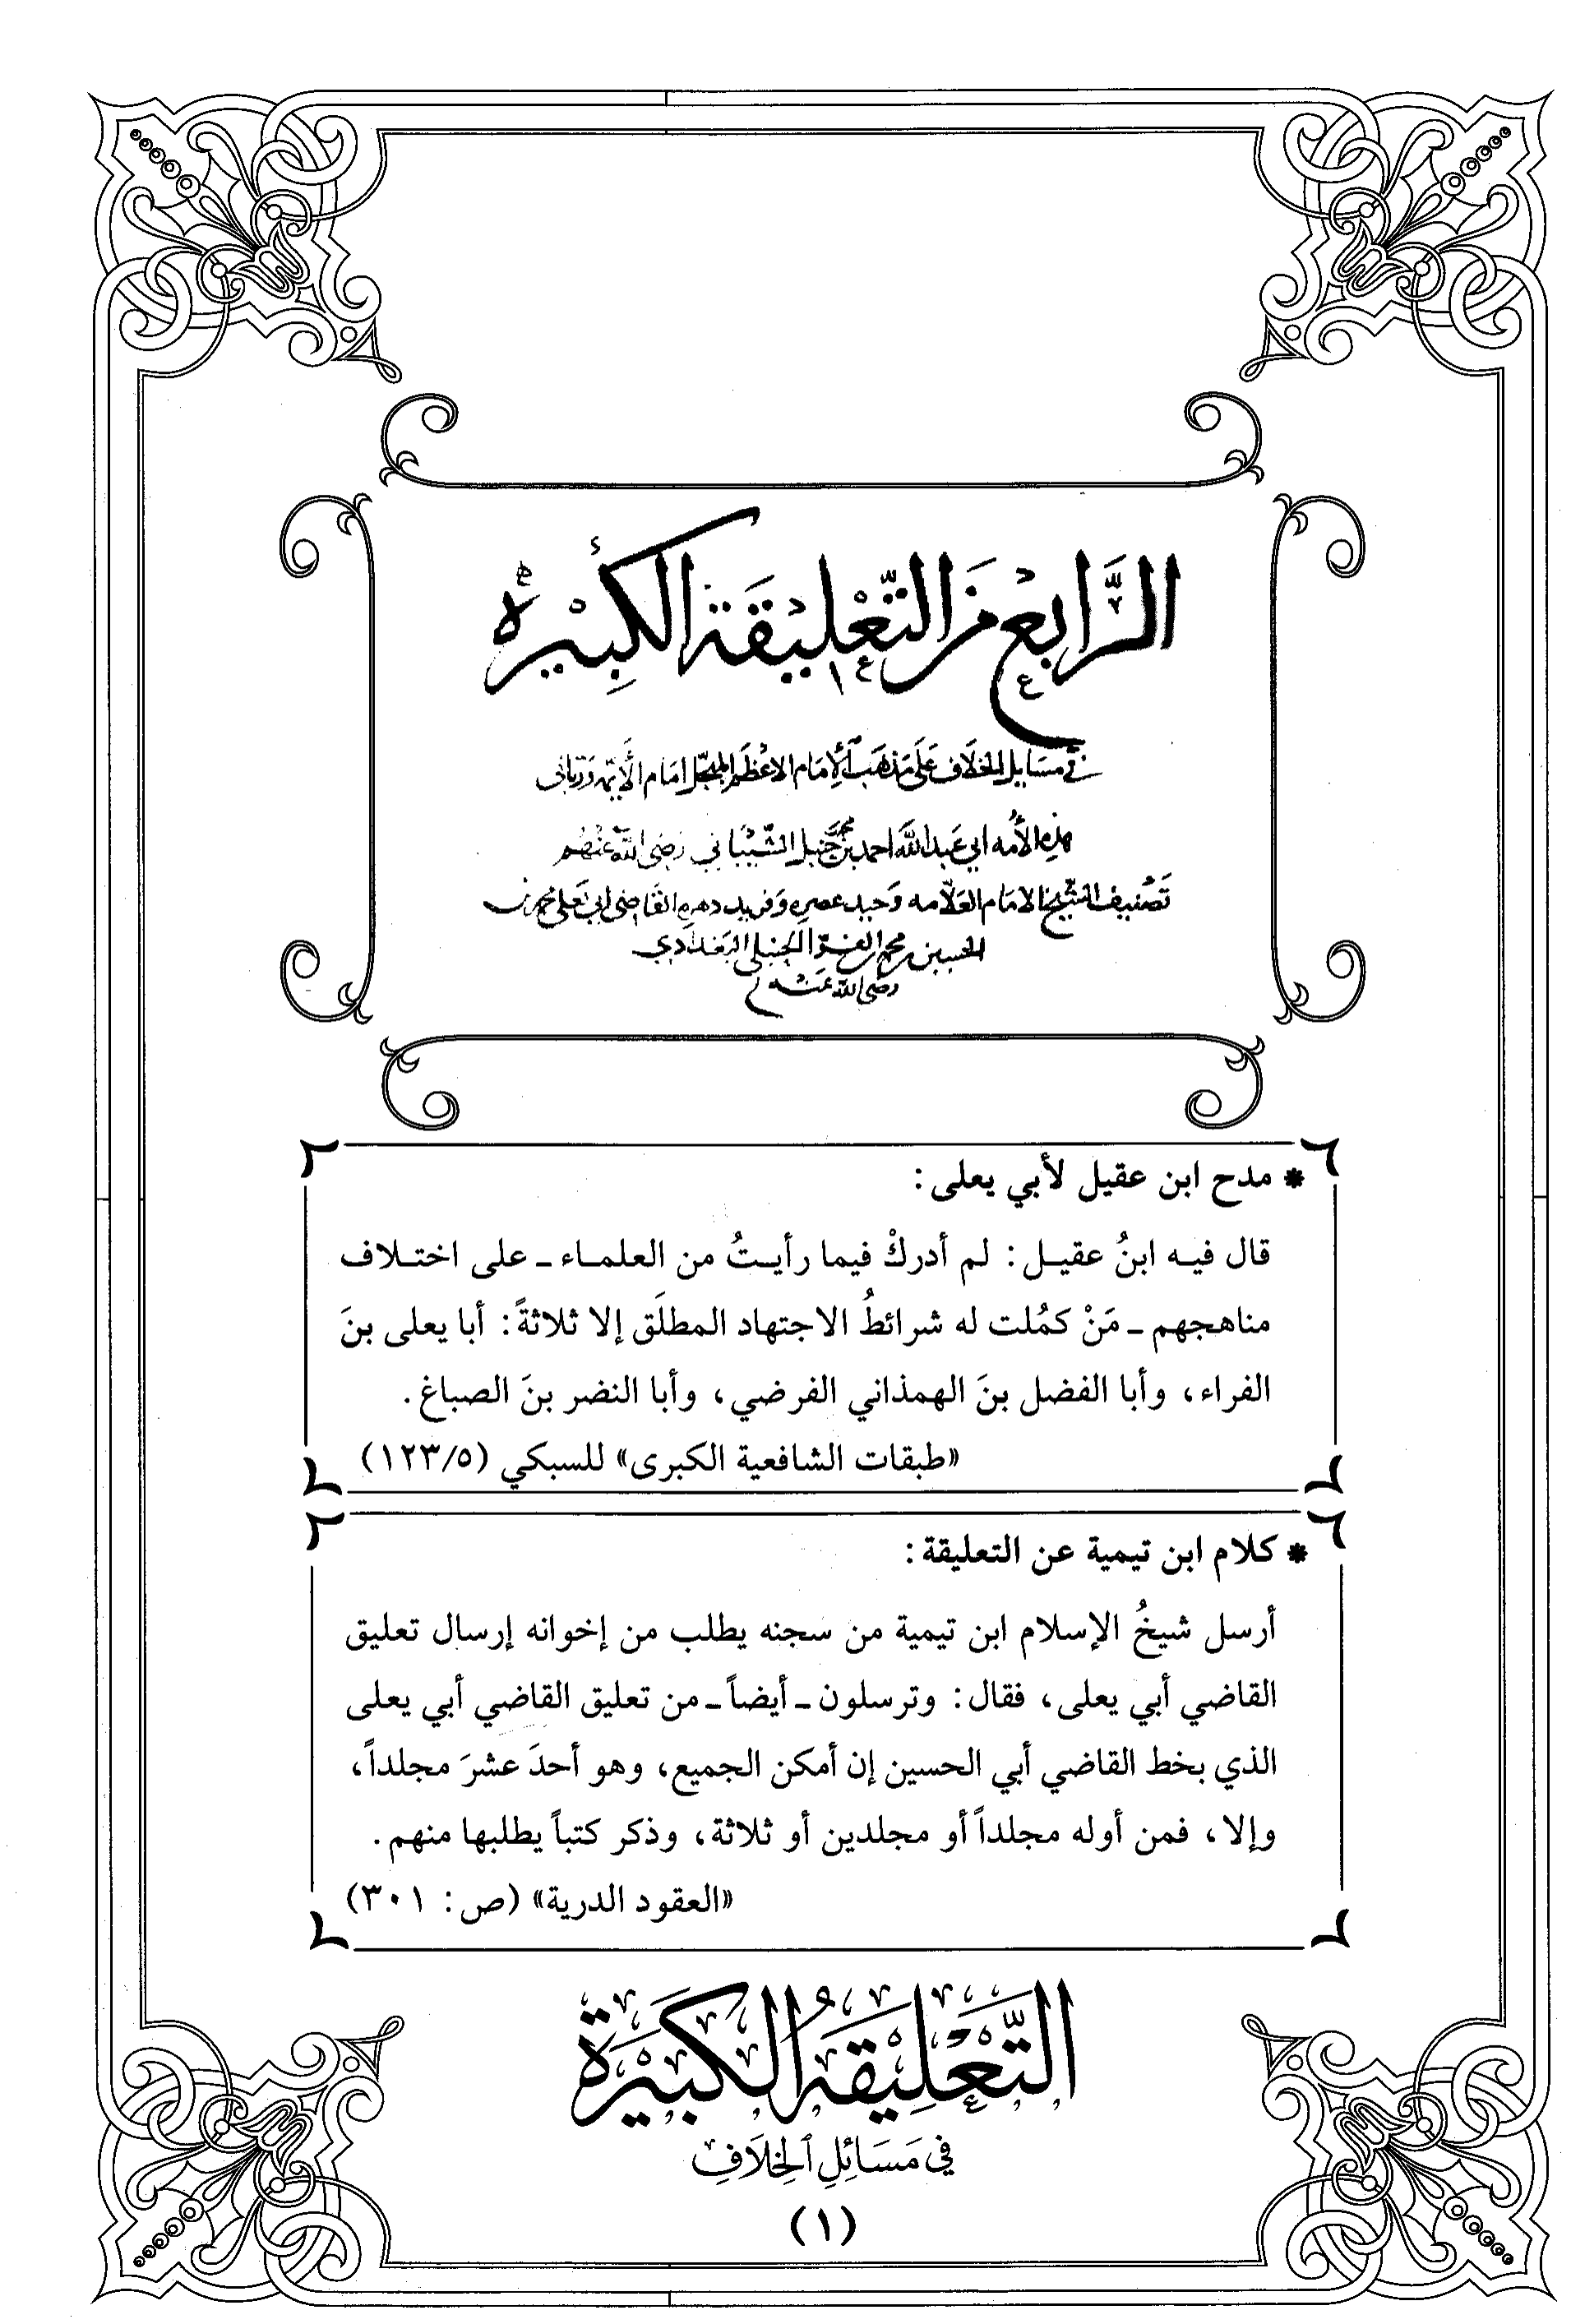 الرَّابع من التَّعْليقَة الكبيرة
في مسَايل الخلَاف عَلَى مَذهَب الإمَام الاعْظَم المبجّل امَام الأئمه وَربّاني
هذه الأُمه ابي عَبد الله احمد بن محمد بن حنبل الشَّيْبَاني رضي الله عَنْهُم
تَصْنيف الشّيخ الامَام العَلّامه وَحيد عصره وَفريد دهره القَاضي ابي يَعلى محمد بن
الحسين بن محمد بن الفرّا الحنبلي البَغدَادي
رضي الله عَنْه
* مدح ابن عقيل لأبي يعلى:
قال فيه ابنُ عقيل: لم أدركْ فيما رأيتُ من العلماء ـ على اختلاف
مناهجهم ـ مَنْ كمُلت له شرائطُ الاجتهاد المطلَق إلا ثلاثةً: أبا يعلى بنَ
الفراء، وأبا الفضل بنَ الهمذاني الفرضي، وأبا النضر بنَ الصباغ.
«طبقات الشافعية الكبرى» للسبكي (١٢٣/٥)
* كلام ابن تيمية عن التعليقة:
أرسل شيخُ الإسلام ابن تيمية من سجنه يطلب من إخوانه إرسال تعليق
القاضي أبي يعلى، فقال: وترسلون ـ أيضاً ـ من تعليق القاضي أبي يعلى
الذي بخط القاضي أبي الحسين إن أمكن الجميع، وهو أحدَ عشرَ مجلداً،
وإلا، فمن أوله مجلداً أو مجلدين أو ثلاثة، وذكر كتباً يطلبها منهم.
«العقود الدرية» (ص: ٣٠١)
التَّعْلِيقَةُ الكَبِيْرَة
في مَسَائِلِ الخِلَافِ
(١)